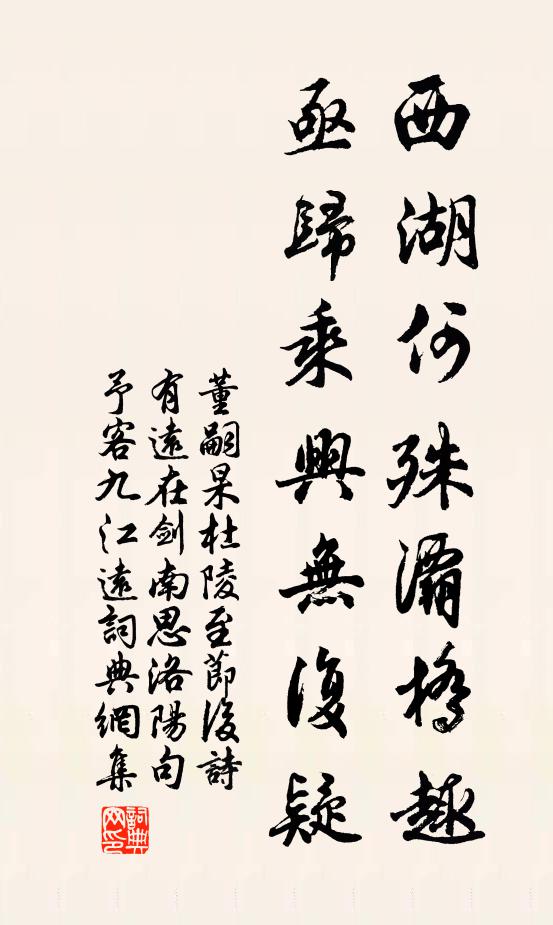 西湖何殊灞橋趣
亟歸乘興無復疑
董嗣杲杜陵至節後詩
有遠在劍南思洛陽句
予客九江遠詞典網集
詞典
网印